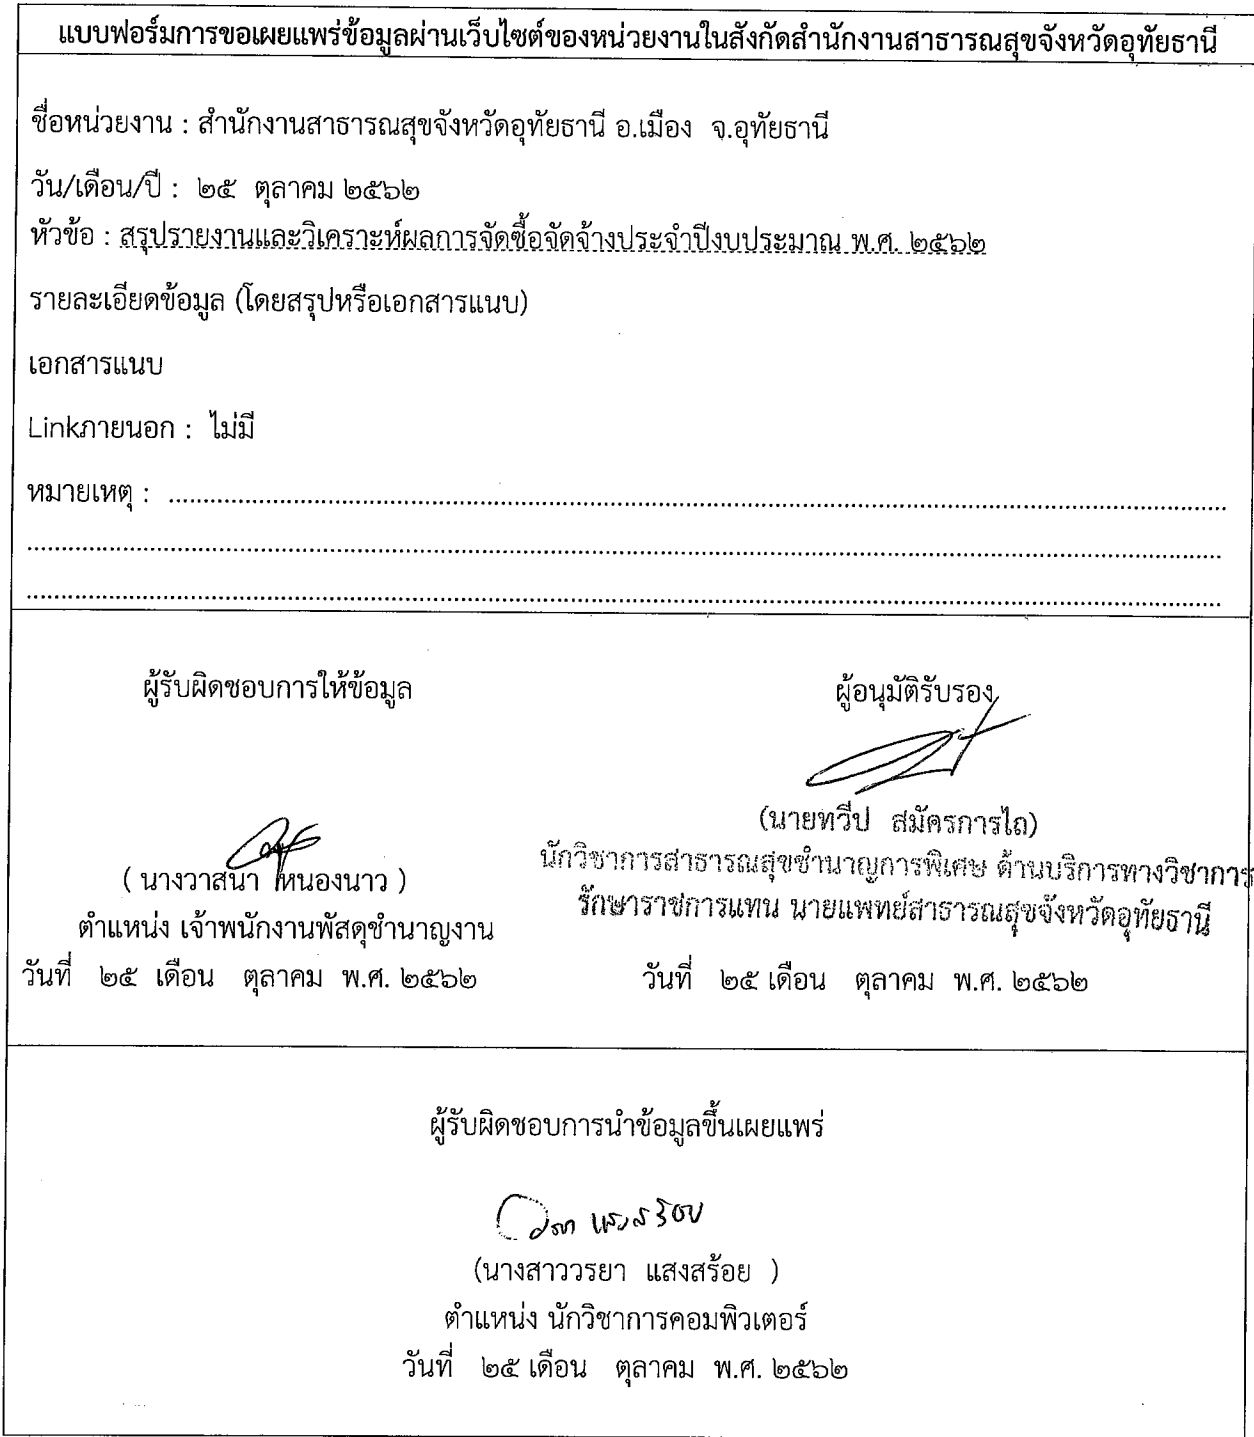 แบบฟอร์มการขอเผยแพร่ข้อมูลผ่านเว็บไซต์ของหน่วยงานในสังกัดสำนักงานสาธารณสุขจังหวัดอุทัยธานี
ชื่อหน่วยงาน : สำนักงานสาธารณสุขจังหวัดอุทัยธานี อ.เมือง จ.อุทัยธานี
วัน/เดือน/ปี : ๒๕ ตุลาคม ๒๕๖๒
หัวข้อ : สรุปรายงานและวิเคราะห์ผลการจัดซื้อจัดจ้างประจำปีงบประมาณ พ.ศ. ๒๕๖๒
รายละเอียดข้อมูล (โดยสรุปหรือเอกสารแนบ)
เอกสารแนบ
Linkภายนอก : ไม่มี
หมายเหตุ :
ผู้รับผิดชอบการให้ข้อมูล
( นางวาสนา หนองนาว )
ตำแหน่ง เจ้าพนักงานพัสดุชำนาญงาน
วันที่ ๒๕ เดือน ตุลาคม พ.ศ. ๒๕๖๒
ผู้อนุมัติรับรอง
(นายทวีป สมัครการไถ)
นักวิชาการสาธารณสุขชำนาญการพิเศษ ด้านบริการทางวิชาการ
รักษาราชการแทน นายแพทย์สาธารณสุขจังหวัดอุทัยธานี
วันที่ ๒๕ เดือน ตุลาคม พ.ศ. ๒๕๖๒
ผู้รับผิดชอบการนำข้อมูลขึ้นเผยแพร่
(นางสาววรยา แสงสร้อย )
ตำแหน่ง นักวิชาการคอมพิวเตอร์
วันที่ ๒๕ เดือน ตุลาคม พ.ศ. ๒๕๖๒